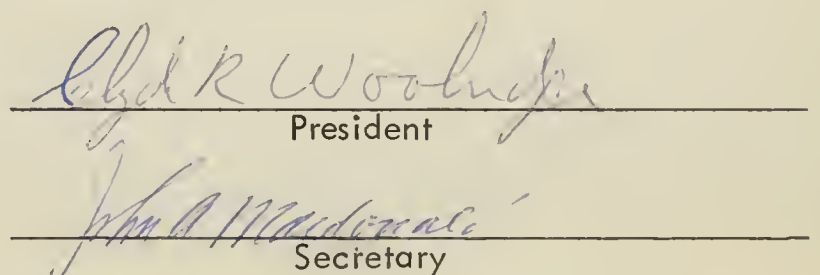 Clyde R Woolridge
President
John A Macdonald
Secretary